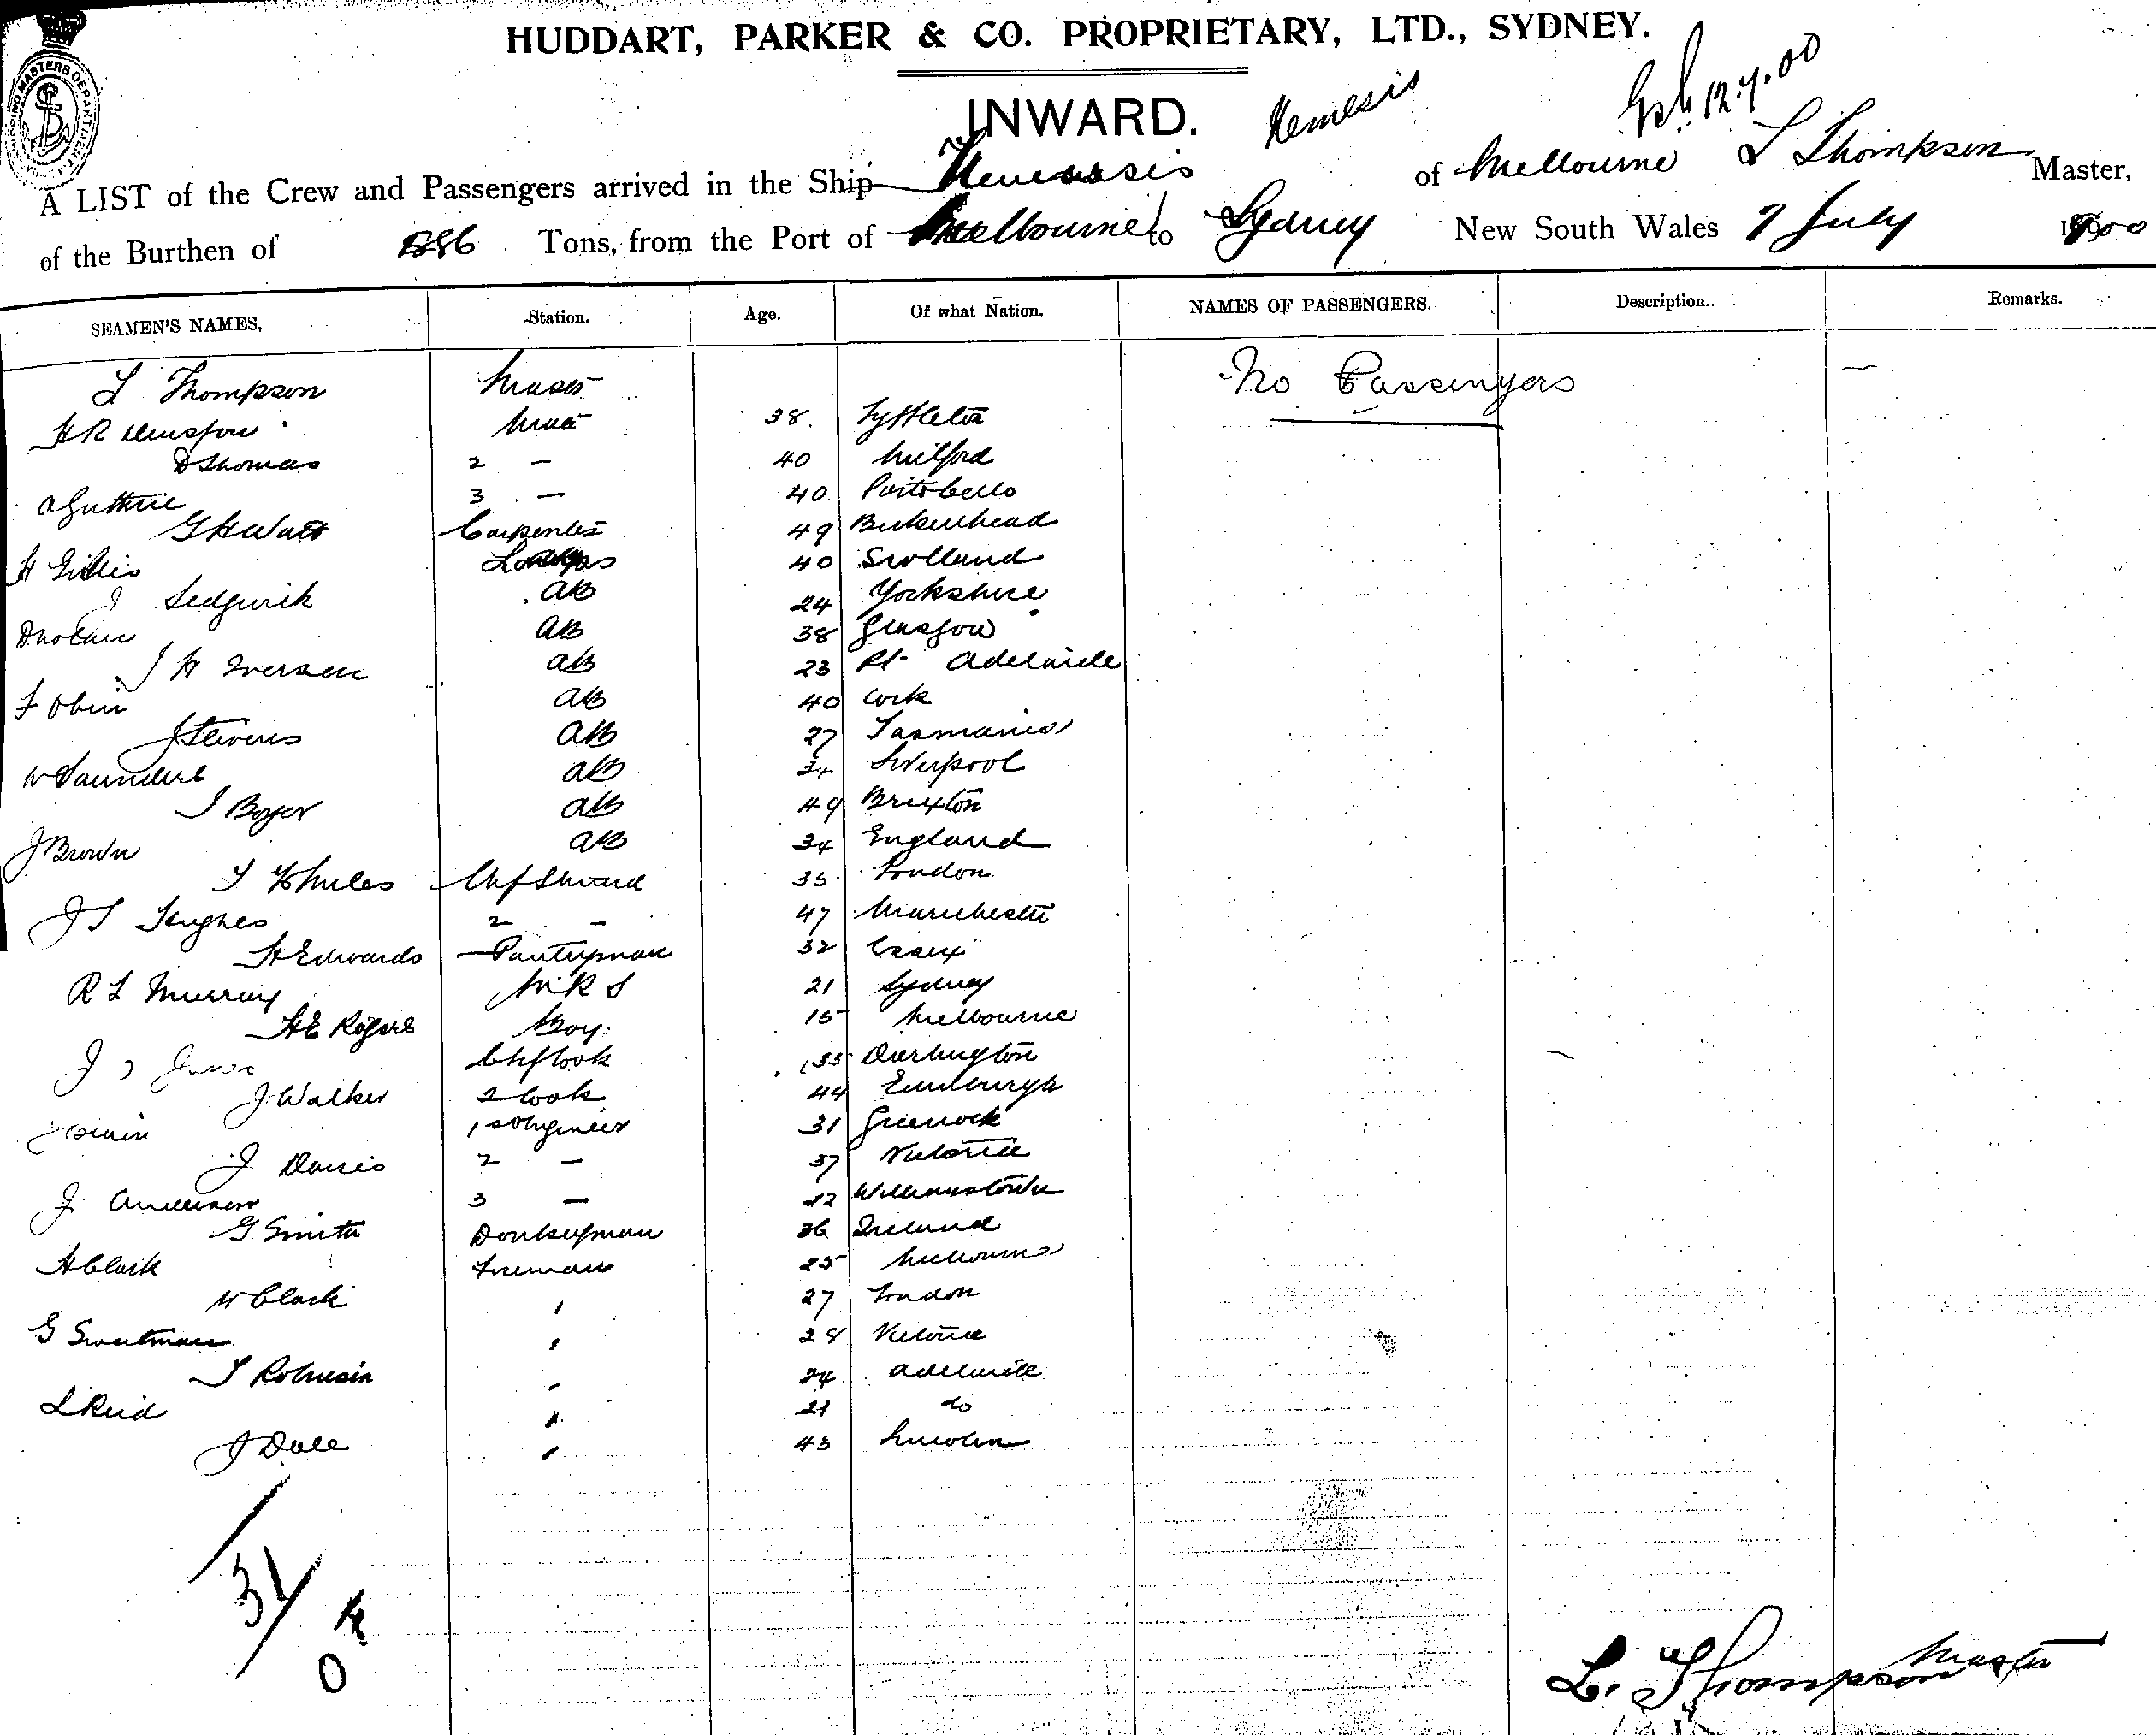 HUDDART, PARKER & CO. PROPRIETARY, LTD., SYDNEY.
INWARD.
Nemesis
12.7.00
A LIST of the Crew and Passengers arrived in the Ship Nemesis of Melbourne L Thompson Master,
of the Burthen of Tons, from the Port of Melbourne to Sydney New South Wales 7 July 1900
SEAMEN'S NAMES, Station. Age. Of what Nation. NAMES OF PASSENGERS. Description. Remarks.
L Thompson Master No Passengers
H R Mate 38. Lyttleton
D Thomas 2 — 40 Milford
A Guthrie 3 — 40 Portobello
G H Watt Carpenter 49 Birkenhead
H Gillis Lamps 40 Scotland
J Sedgwick AB 24 Yorkshire
D Nolan AB 38 Glasgow
J H Iversen AB 23 Pt Adelaide
F AB 40 Cork
J Stevens AB 27 Tasmania
W Saunders AB 34 Liverpool
J Boyer AB 49 Brixton
J Brown AB 34 England
T Chf Steward 35 London
J T Hughes 2 — 47 Manchester
H Edwards Pantryman 32 Essex
R L Murray 21 Sydney
H E Rogers Boy 15 Melbourne
J Chf Cook 35 Darlington
J. Walker 2 Cook 44 Edinburgh
1st Engineer 31 Greenock
J Davis 2 — 37 Victoria
J. Anderson 3 — 22 Williamstown
G. Smith Donkeyman 36 Ireland
H Clark Fireman 25 Melbourne
W Clark 27 London
G Sweetman 28 Victoria
T Robinson 24 Adelaide
L Reid 21 do
J Dale 43 Lincoln
31
0
L. Thompson Master